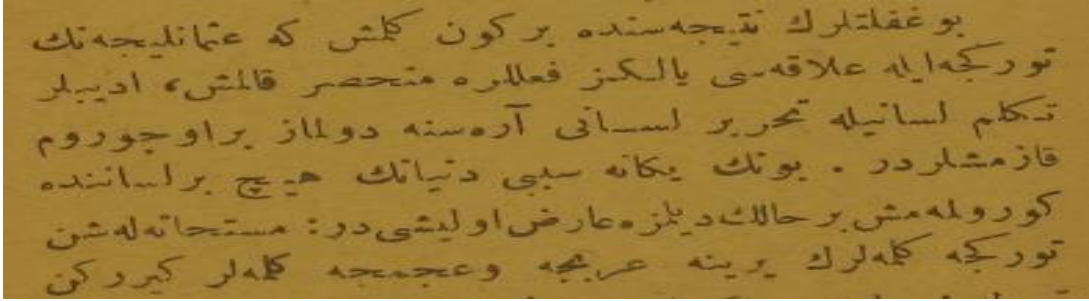 بو غفلتلرك نتيجه‌سنده بر كون كلمش كه عثمانليجه‌نك
توركجه ايله علاقه‌سى يالكز فعللره منحصر قالمش، اديبلر
تكلم لسانيله تحرير لسانى آره‌سنه دولماز بر اوچوروم
قازمشلردر . بونك يكانه سببى دنيانك هيچ بر لساننده
كورولمه‌مش بر حالك ديلمزه عارض اوليشى در : مستحاثه‌لشن
توركجه كلمه‌لرك يرينه عربجه وعجمجه كلمه‌لر كيرركن